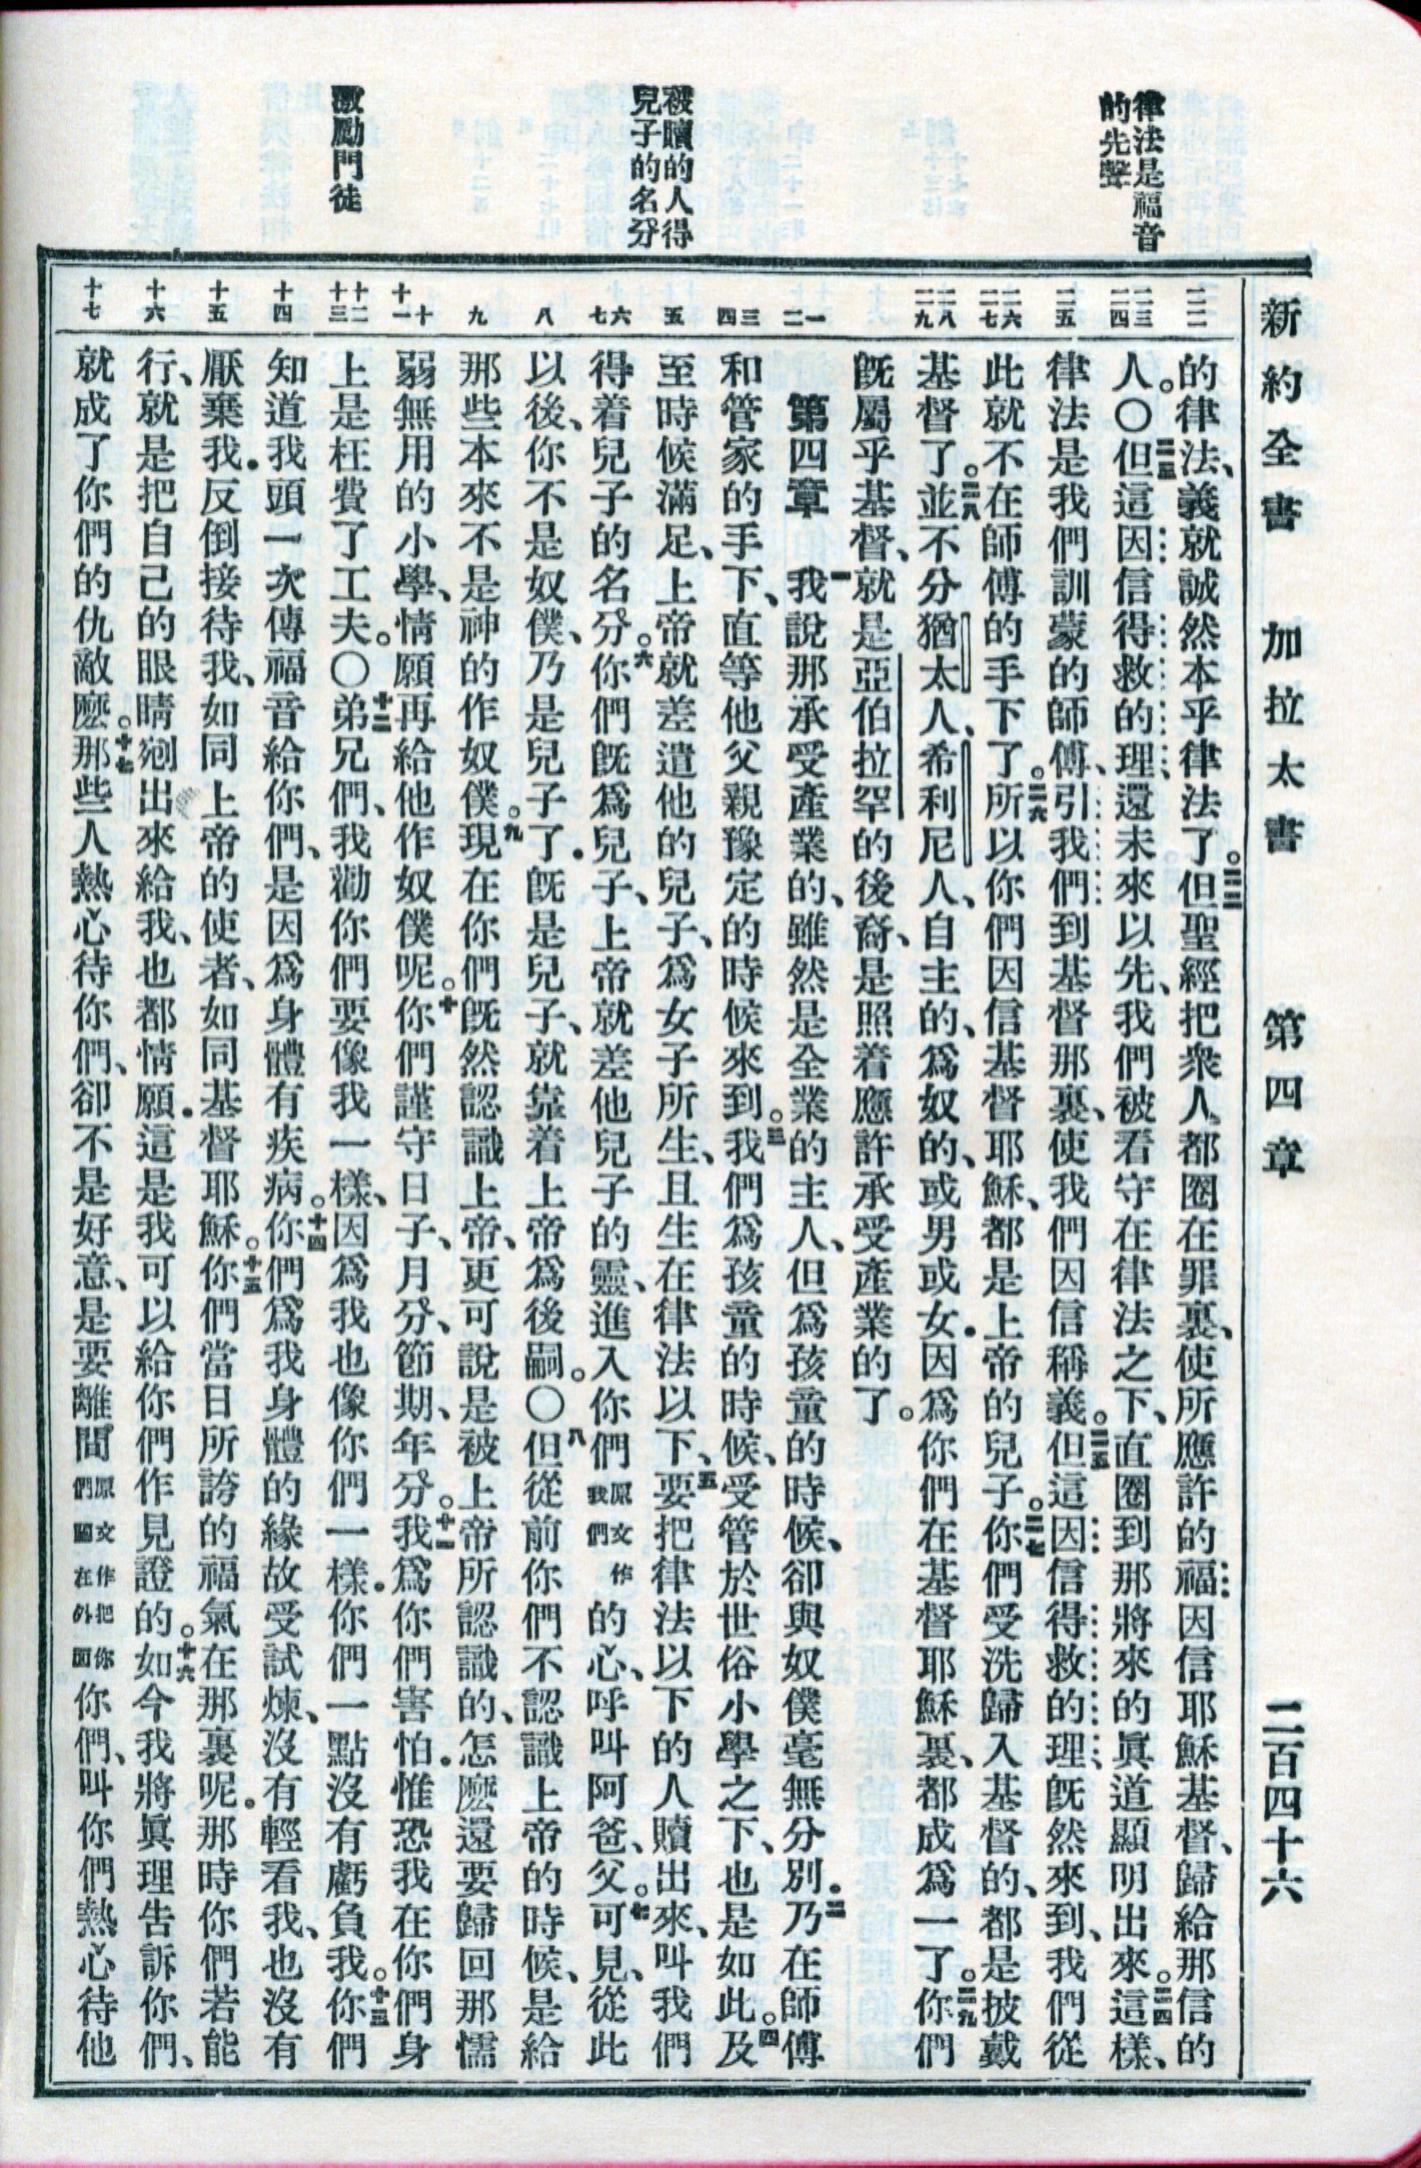 新約全書 加拉太書 第四章 二百四十六
律法是福音
的先聲
被贖的人得
兒子的名分
激勵門徒
二二
二三
二四
二五
二六
二七
二八
二九
一
二
三
四
五
六
七
八
九
十
十一
十二
十三
十四
十五
十六
十七
的律法、義就誠然本乎律法了。二二但聖經把衆人都圈在罪裏、使所應許的福因信耶穌基督、歸給那信的
人。〇二三但這因信得救的理、還未來以先、我們被看守在律法之下、直圈到那將來的眞道顯明出來。二四這樣、
律法是我們訓蒙的師傅、引我們到基督那裏、使我們因信稱義。二五但這因信得救的理、旣然來到、我們從
此就不在師傅的手下了。二六所以你們因信基督耶穌、都是上帝的兒子。二七你們受洗歸入基督的、都是披戴
基督了。二八並不分猶太人、希利尼人、自主的、爲奴的、或男或女．因爲你們在基督耶穌裏、都成爲一了。二九你們
旣屬乎基督、就是亞伯拉罕的後裔、是照着應許承受產業的了。
第四章 一我說那承受產業的、雖然是全業的主人、但爲孩童的時候、卻與奴僕毫無分別．二乃在師傅
和管家的手下、直等他父親豫定的時候來到。三我們爲孩童的時候、受管於世俗小學之下、也是如此。四及
至時候滿足、上帝就差遣他的兒子、爲女子所生、且生在律法以下、五要把律法以下的人贖出來、叫我們
得着兒子的名分。六你們旣爲兒子、上帝就差他兒子的靈、進入你們原文作我們的心、呼叫阿爸、父。七可見、從此
以後、你不是奴僕、乃是兒子了．旣是兒子、就靠着上帝爲後嗣。〇八但從前你們不認識上帝的時候、是給
那些本來不是神的作奴僕。九現在你們旣然認識上帝、更可說是被上帝所認識的、怎麼還要歸回那懦
弱無用的小學、情願再給他作奴僕呢。十你們謹守日子、月分、節期、年分。十一我爲你們害怕．惟恐我在你們身
上是枉費了工夫。〇十二弟兄們、我勸你們要像我一樣、因爲我也像你們一樣．你們一點沒有虧負我。十三你們
知道我頭一次傳福音給你們、是因爲身體有疾病。十四你們爲我身體的緣故受試煉、沒有輕看我、也沒有
厭棄我．反倒接待我、如同上帝的使者、如同基督耶穌。十五你們當日所誇的福氣在那裏呢．那時你們若能
行、就是把自己的眼睛剜出來給我、也都情願．這是我可以給你們作見證的。十六如今我將眞理告訴你們、
就成了你們的仇敵麼。十七那些人熱心待你們、卻不是好意、是要離間原文作把你們關在外面你們、叫你們熱心待他